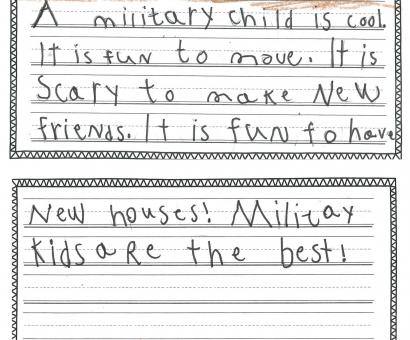 A military child is cool.
It is fun to move. It is
Scary to make New
friends. It is fun to have
New houses! Militay
Kids are the best!